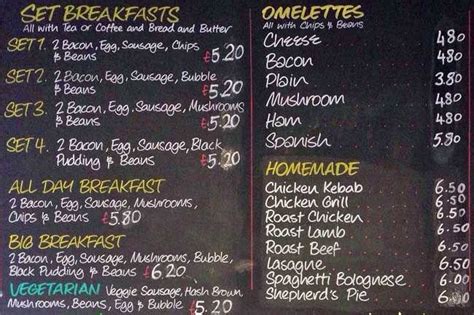 SET BREAKFASTS
All with Tea or Coffee and Bread and Butter
SET 1. 2 Bacon, Egg, Sausage, Chips
& Beans £5.20
SET 2. 2 Bacon, Egg, Sausage, Bubble
& Beans £5.20
SET 3. 2 Bacon, Egg, Sausage, Mushrooms
& Beans £5.20
SET 4. 2 Bacon, Egg, Sausage, Black
Pudding & Beans £5.20
ALL DAY BREAKFAST
2 Bacon, Egg, Sausage, Mushrooms,
Chips & Beans £5.80
BIG BREAKFAST
2 Bacon, Egg, Sausage, Mushrooms, Bubble,
Black Pudding & Beans £6.20
VEGETARIAN Veggie Sausage, Hash Brown,
Mushrooms, Beans, Egg & Bubble £5.20
OMELETTES
All with Chips & Beans
Cheese 4.80
Bacon 4.80
Plain 3.80
Mushroom 4.80
Ham 4.80
Spanish 5.80
HOMEMADE
Chicken Kebab 6.50
Chicken Grill 6.50
Roast Chicken 6.50
Roast Lamb 6.50
Roast Beef 6.50
Lasagne 6.50
Spaghetti Bolognese 6.50
Shepherd's Pie 6.50